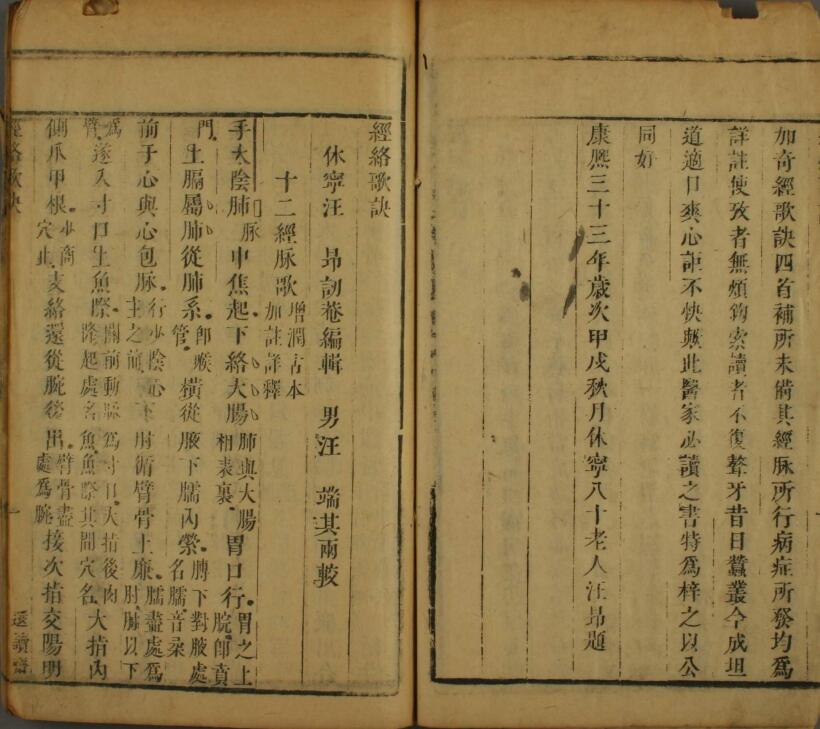 加奇經歌訣四首補所未備其經脉所行病症所發均爲
詳註使攷者無煩鈎索讀者不復聱牙昔日蠶叢今成坦
道適口爽心詎不快歟此醫家必讀之書特爲梓之以公
同好
康熈三十三年歲次甲戌秋月休寧八十老人汪昂題
經絡歌訣
休寧汪 昂訒菴編輯 男汪 端其兩較
十二經脉歌增潤古本加註詳釋
手太陰肺脉中焦起下絡大腸肺與大腸相表裏胃口行胃之上脘卽賁
門上膈屬肺從肺系卽喉管橫從腋下臑內縈膊下對腋處名臑音柔
前于心與心包脉行少陰心主之前下肘循臂骨上廉臑盡處爲肘肘以下
爲臂遂入寸口上魚際關前動脉爲寸口大指後肉隆起處名魚魚際其間穴名大指內
側爪甲根少商穴止支絡還從腕後出臂骨盡處爲腕接次指交陽明
經絡歌訣
一
還讀齋